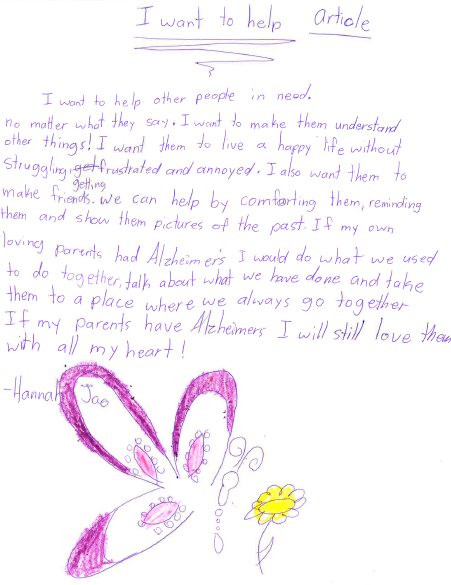 I want to help article
I want to help other people in need.
no matter what they say. I want to make them understand
other things! I want them to live a happy life without
struggling, get frustrated and annoyed. I also want them to
getting
make friends. We can help by comforting them, reminding
them and show them pictures of the past. If my own
loving parents had Alzheimer's I would do what we used
to do together, talk about what we have done and take
them to a place where we always go together
If my parents have Alzheimers I will still love them
with all my heart!
-Hannah Jao